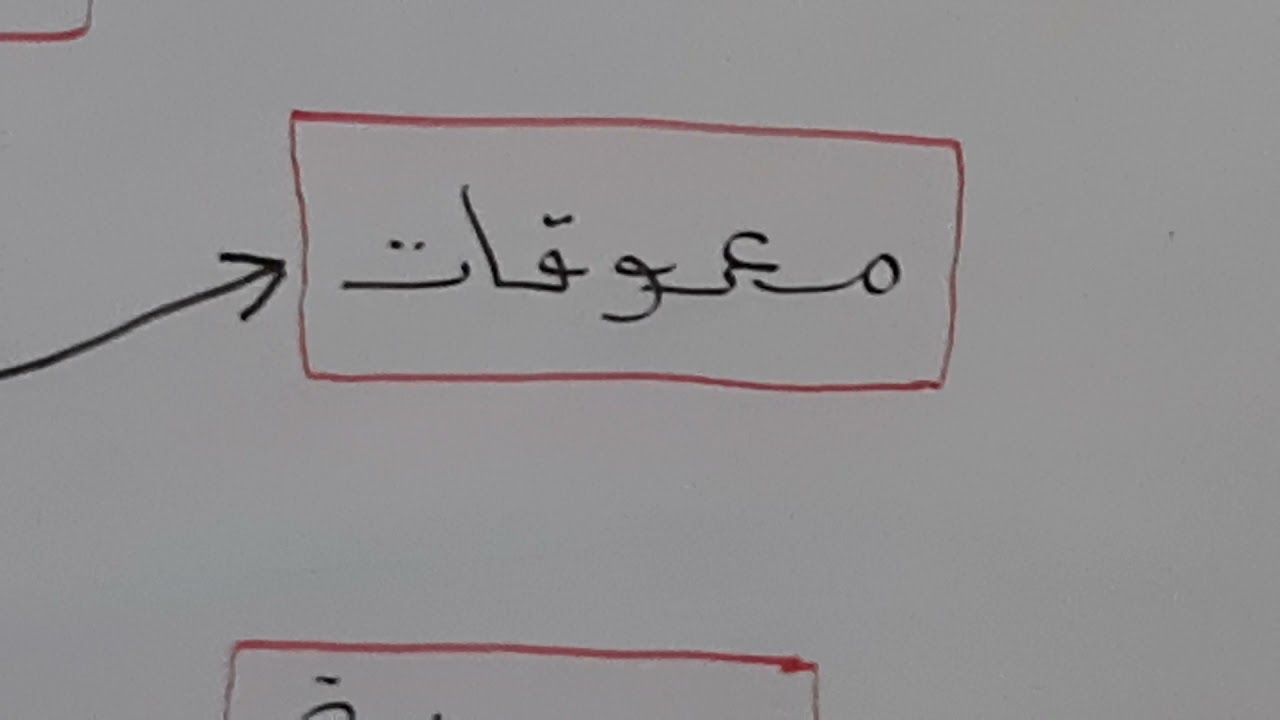 معوقات